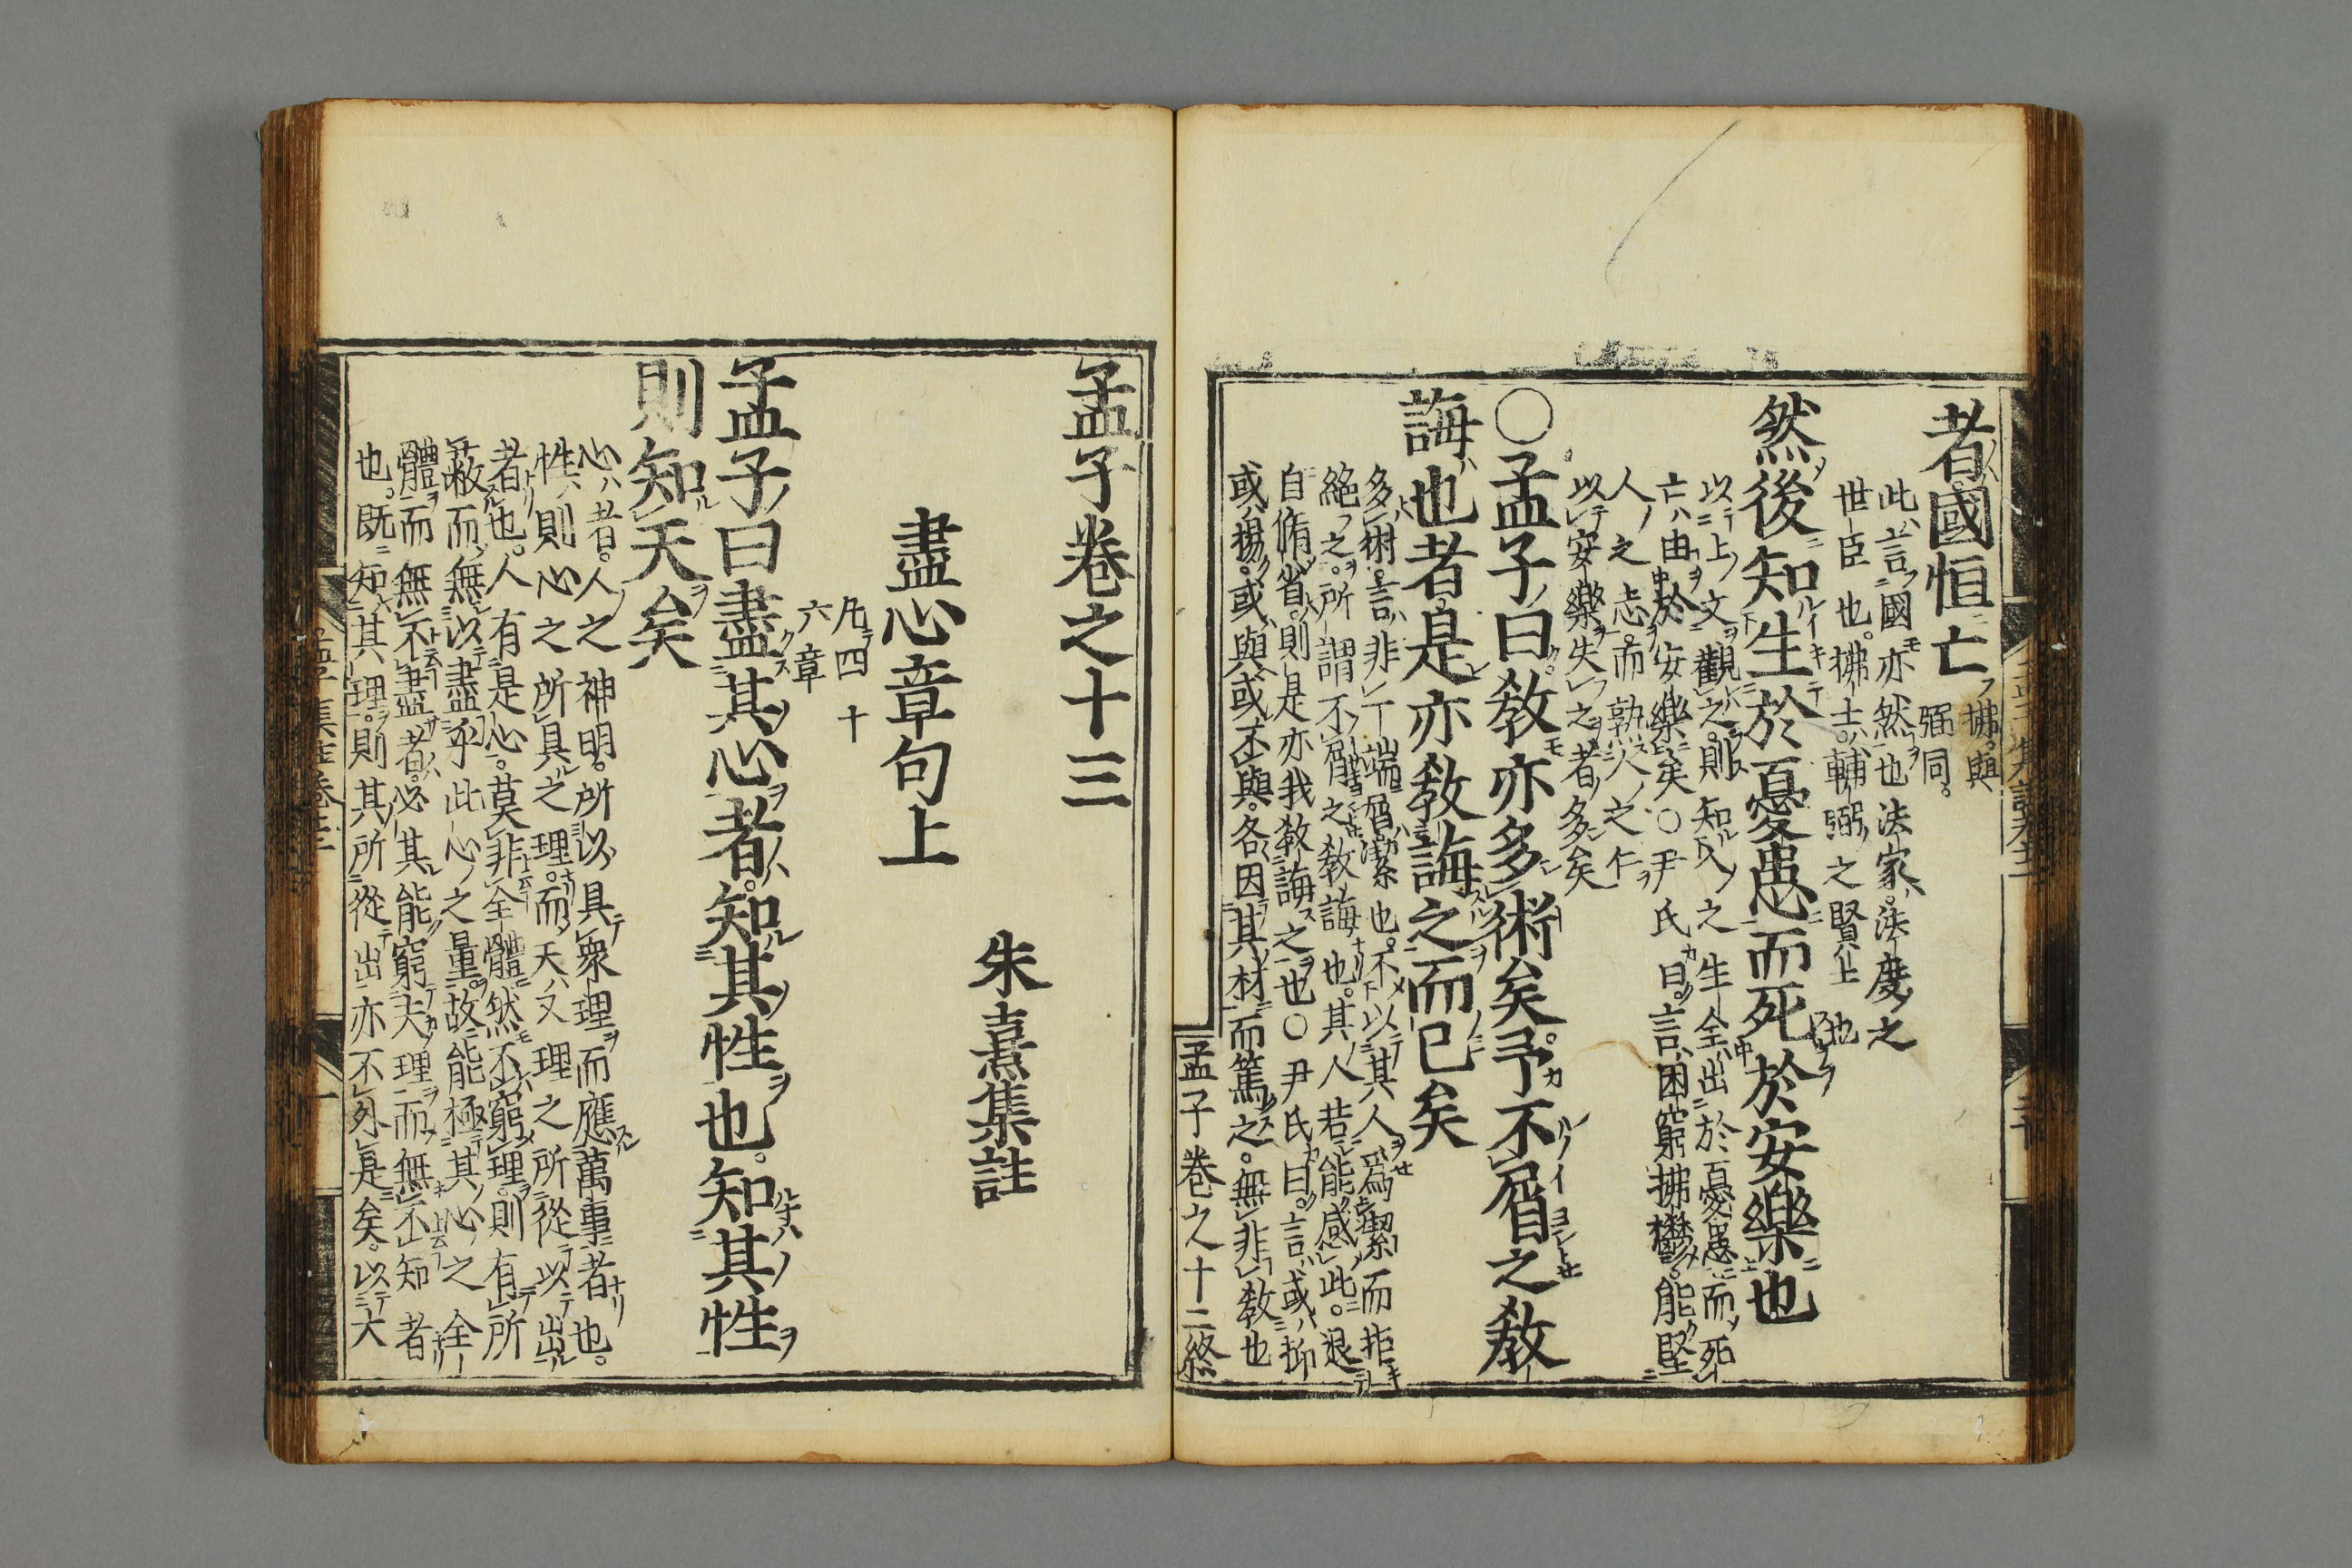 者國恒亡 拂與
弼同。
此言國亦然也法家。法度之
世臣也。拂士。輔弼之賢士也
然後知生於憂患而死於安樂也
以上文觀之。則知人之生全出於憂患而死
亡由於安樂矣○尹氏曰。言困窮拂欝。能堅
人之志。而熟人之仁
以安樂失之者多矣
○孟子曰敎亦多術矣。予不屑之敎
誨也者是亦敎誨之而已矣
多術。言非一端。屑潔也。不以其人爲潔而拒
絕之。所謂不屑之敎誨也。其人若能感此。退
自脩省。則是亦我敎誨之也○尹氏曰。言或抑
或揚。或與或不與。各因其材而篤之。無非敎也
孟子卷之十二終
孟子卷之十三
朱熹集註
盡心章句上
凡四十
六章
孟子曰盡其心者。知其性也。知其性
則知天矣
心者。人之神明。所以具衆理而應萬事者也。
性則心之所具之理。而天又理之所從以出
者也。人有是心。莫非全體然不窮理。則有所
蔽而無以盡乎此心之量。故能極其心之全
體而無不盡者。必其能窮夫理而無不知者
也。既知其理。則其所從出亦不外是矣。以大